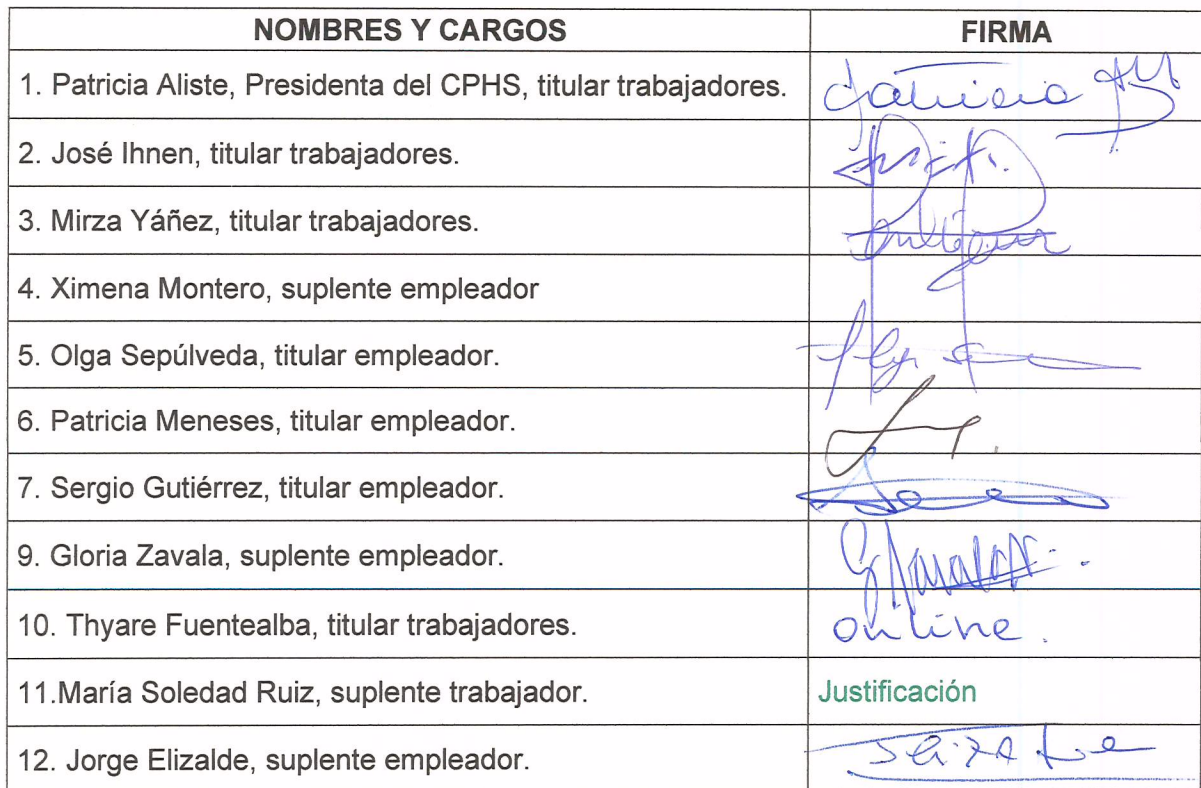 NOMBRES Y CARGOS FIRMA
1. Patricia Aliste, Presidenta del CPHS, titular trabajadores. Patricia
2. José Ihnen, titular trabajadores.
3. Mirza Yáñez, titular trabajadores.
4. Ximena Montero, suplente empleador
5. Olga Sepúlveda, titular empleador.
6. Patricia Meneses, titular empleador.
7. Sergio Gutiérrez, titular empleador.
9. Gloria Zavala, suplente empleador.
10. Thyare Fuentealba, titular trabajadores. online.
11.María Soledad Ruiz, suplente trabajador. Justificación
12. Jorge Elizalde, suplente empleador.